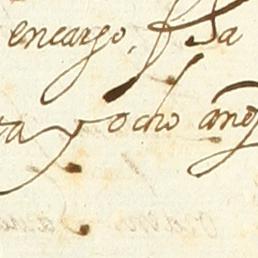 encargo, Sa
ta y ocho años